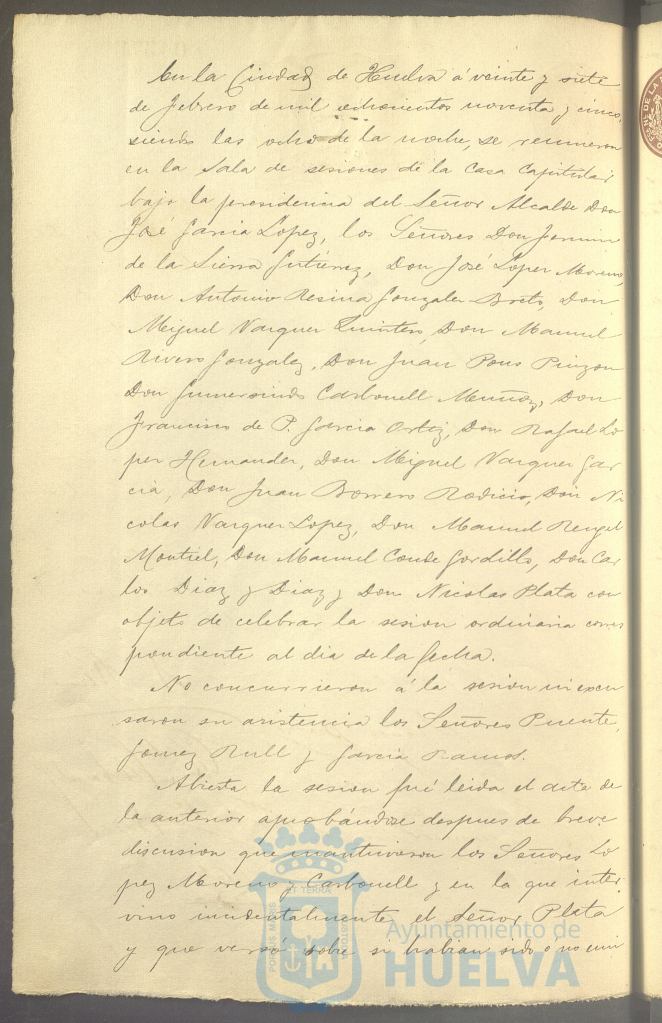 En la Ciudad de Huelva á veinte y siete
de Febrero de mil ochocientos noventa y cinco,
siendo las ocho de la noche, se reunieron
en la Sala de sesiones de la Casa Capitular
bajo la presidencia del Señor Alcalde Don
José Garcia Lopez, los Señores Don Fermin
de la Sierra Gutiérrez, Don José Lopez Moreno,
Don Antonio Resina Gonzalez Brito, Don
Miguel Vazquez Quintero, Don Manuel
Rivero Gonzalez, Don Juan Pons Pinzon
Don Gumersindo Carbonell Muñoz, Don
Francisco de P. Garcia Ortiz, Don Rafael Lo
pez Hernandez, Don Miguel Vazquez Gar
cia, Don Juan Borrero Rodicio, Don Ni
colas Vazquez Lopez, Don Manuel Rengel
Montiel, Don Manuel Conde Gordillo, Don Car
los Diaz y Diaz y Don Nicolas Plata con
objeto de celebrar la sesion ordinaria corres
pondiente al dia de la fecha.
No concurrieron á la sesion ni excu
saron su asistencia los Señores Puente,
Gomez Rull y Garcia Ramos.
Abierta la sesion fué leida el acta de
la anterior aprobándose despues de breve
discusion que mantuvieron los Señores Lo
pez Moreno y Carbonell y en la que inter
vino incidentalmente el Señor Plata
y que versó sobre si habian sido o no
Ayuntamiento de
HUELVA